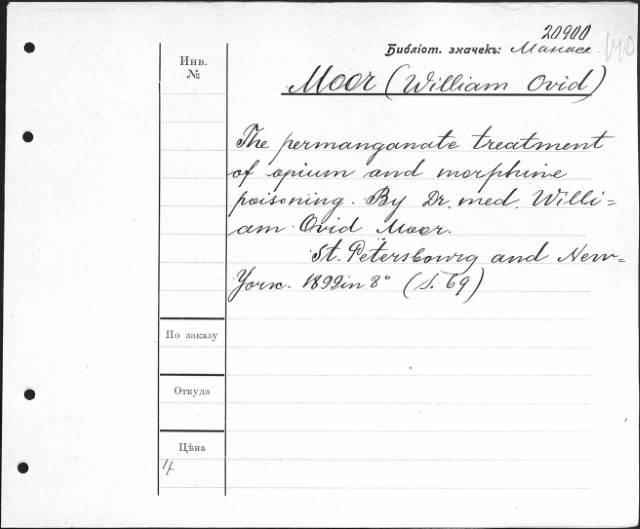 20900
Библіот. значекъ: Манасс.
Инв.
№
Moor (William Ovid)
The permanganate treatment
of opium and morphine
poisoning. By Dr. med. Willi=
am Ovid Moor.
St. Petersbourg and New-
York. 1899 in 8° (S. 69)
По заказу
Откуда
Цѣна